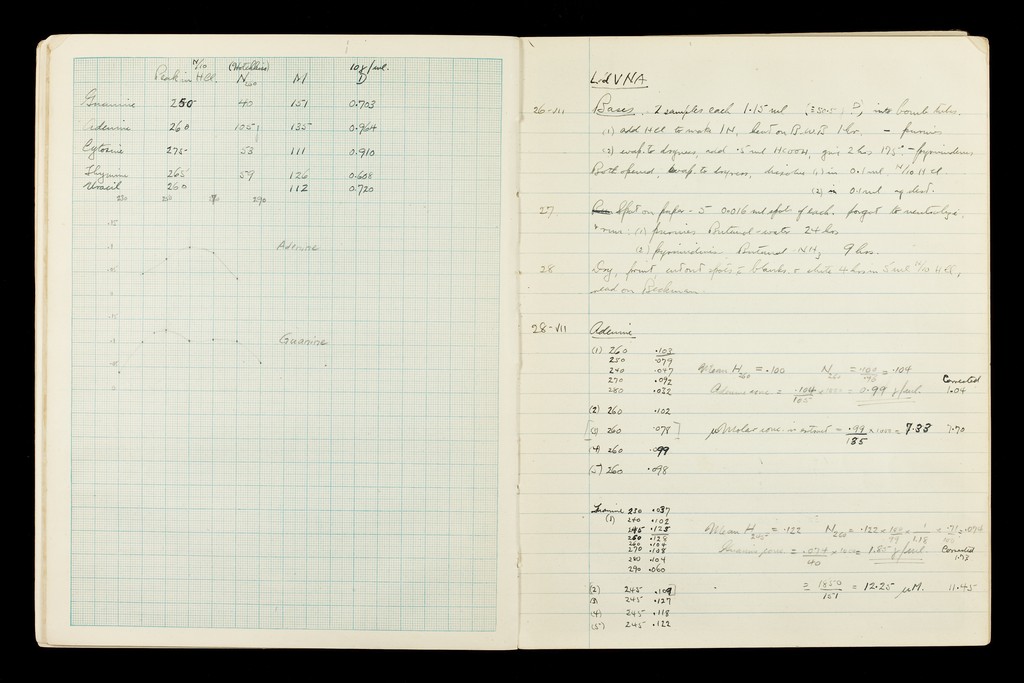 N/10 (Hotchkiss) 10γ/ml.
Peak in HCl. N260 M D
Guanine 250 40 151 0.703
Adenine 260 105 135 0.964
Cytosine 275- 53 111 0.910
Thymine 265 59 126 0.608
Uracil 260 112 0.720
Adenine
Guanine
26-VII Bases. 2 samples each 1.15 ml into bomb tubes.
(1) add HCl to make 1N, heat on B.W.B 1 hr. - purines
(2) evap. to dryness, add .5 ml HCOOH, 2 hrs 175°. - pyrimidines
Both opened, evap. to dryness, dissolve (1) in 0.1 ml. N/10 HCl
(2) in 0.1 ml aq dist.
27 Spot on paper - 5 0.016 ml spot of each. forgot to neutralize.
run: (1) purines Butanol-water 24 hrs
(2) pyrimidines Butanol-NH3 9 hrs.
28 Dry, print, cut out spots & blanks & elute 4 hrs in 5 ml N/10 HCl,
read on Beckman.
28-VII Adenine
(1) 260 .103
250 .079
240 .047 Mean H260 = .100 N260 = .100/.96 = .104
270 .092 Corrected
280 .032 Adenine conc = .104/105 × 1000 = 0.99 γ/ml. 1.04
(2) 260 .102
[(3) 260 .078] μMolar conc. in extract = .99/135 × 1000 = 7.33 7.70
(4) 260 .099
(5) 260 .098
Guanine 230 .037
(1) 240 .102
245 .125 Mean H245 = .122 N260 = .122 ×
250 .128
260 .104
270 .108 Guanine conc. = .074/40 × 1000 = 1.85 γ/ml. Corrected
280 .104 1.73
290 .060
(2) 245 .109] = 1850/151 = 12.25 μM. 11.45
(3) 245 .127
(4) 245 .118
(5) 245 .122